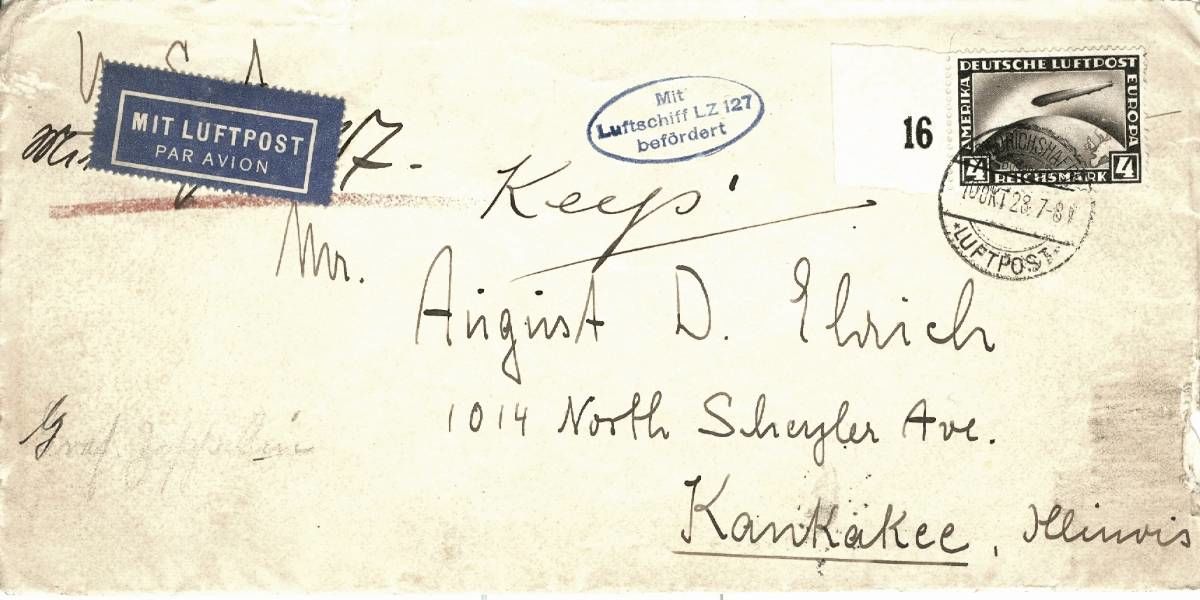 U. S. A.
MIT LUFTPOST
PAR AVION
7.
Mit
Luftschiff LZ 127
befördert
16
DEUTSCHE LUFTPOST
AMERIKA
EUROPA
4 REICHSMARK 4
FRIEDRICHSHAFEN
10 OKT 28 7-8 V
*LUFTPOST*
Keep
Mr.
August D. Ehrich
1014 North Scheyler Ave.
Graf Zeppelin
Kankakee, Illinois